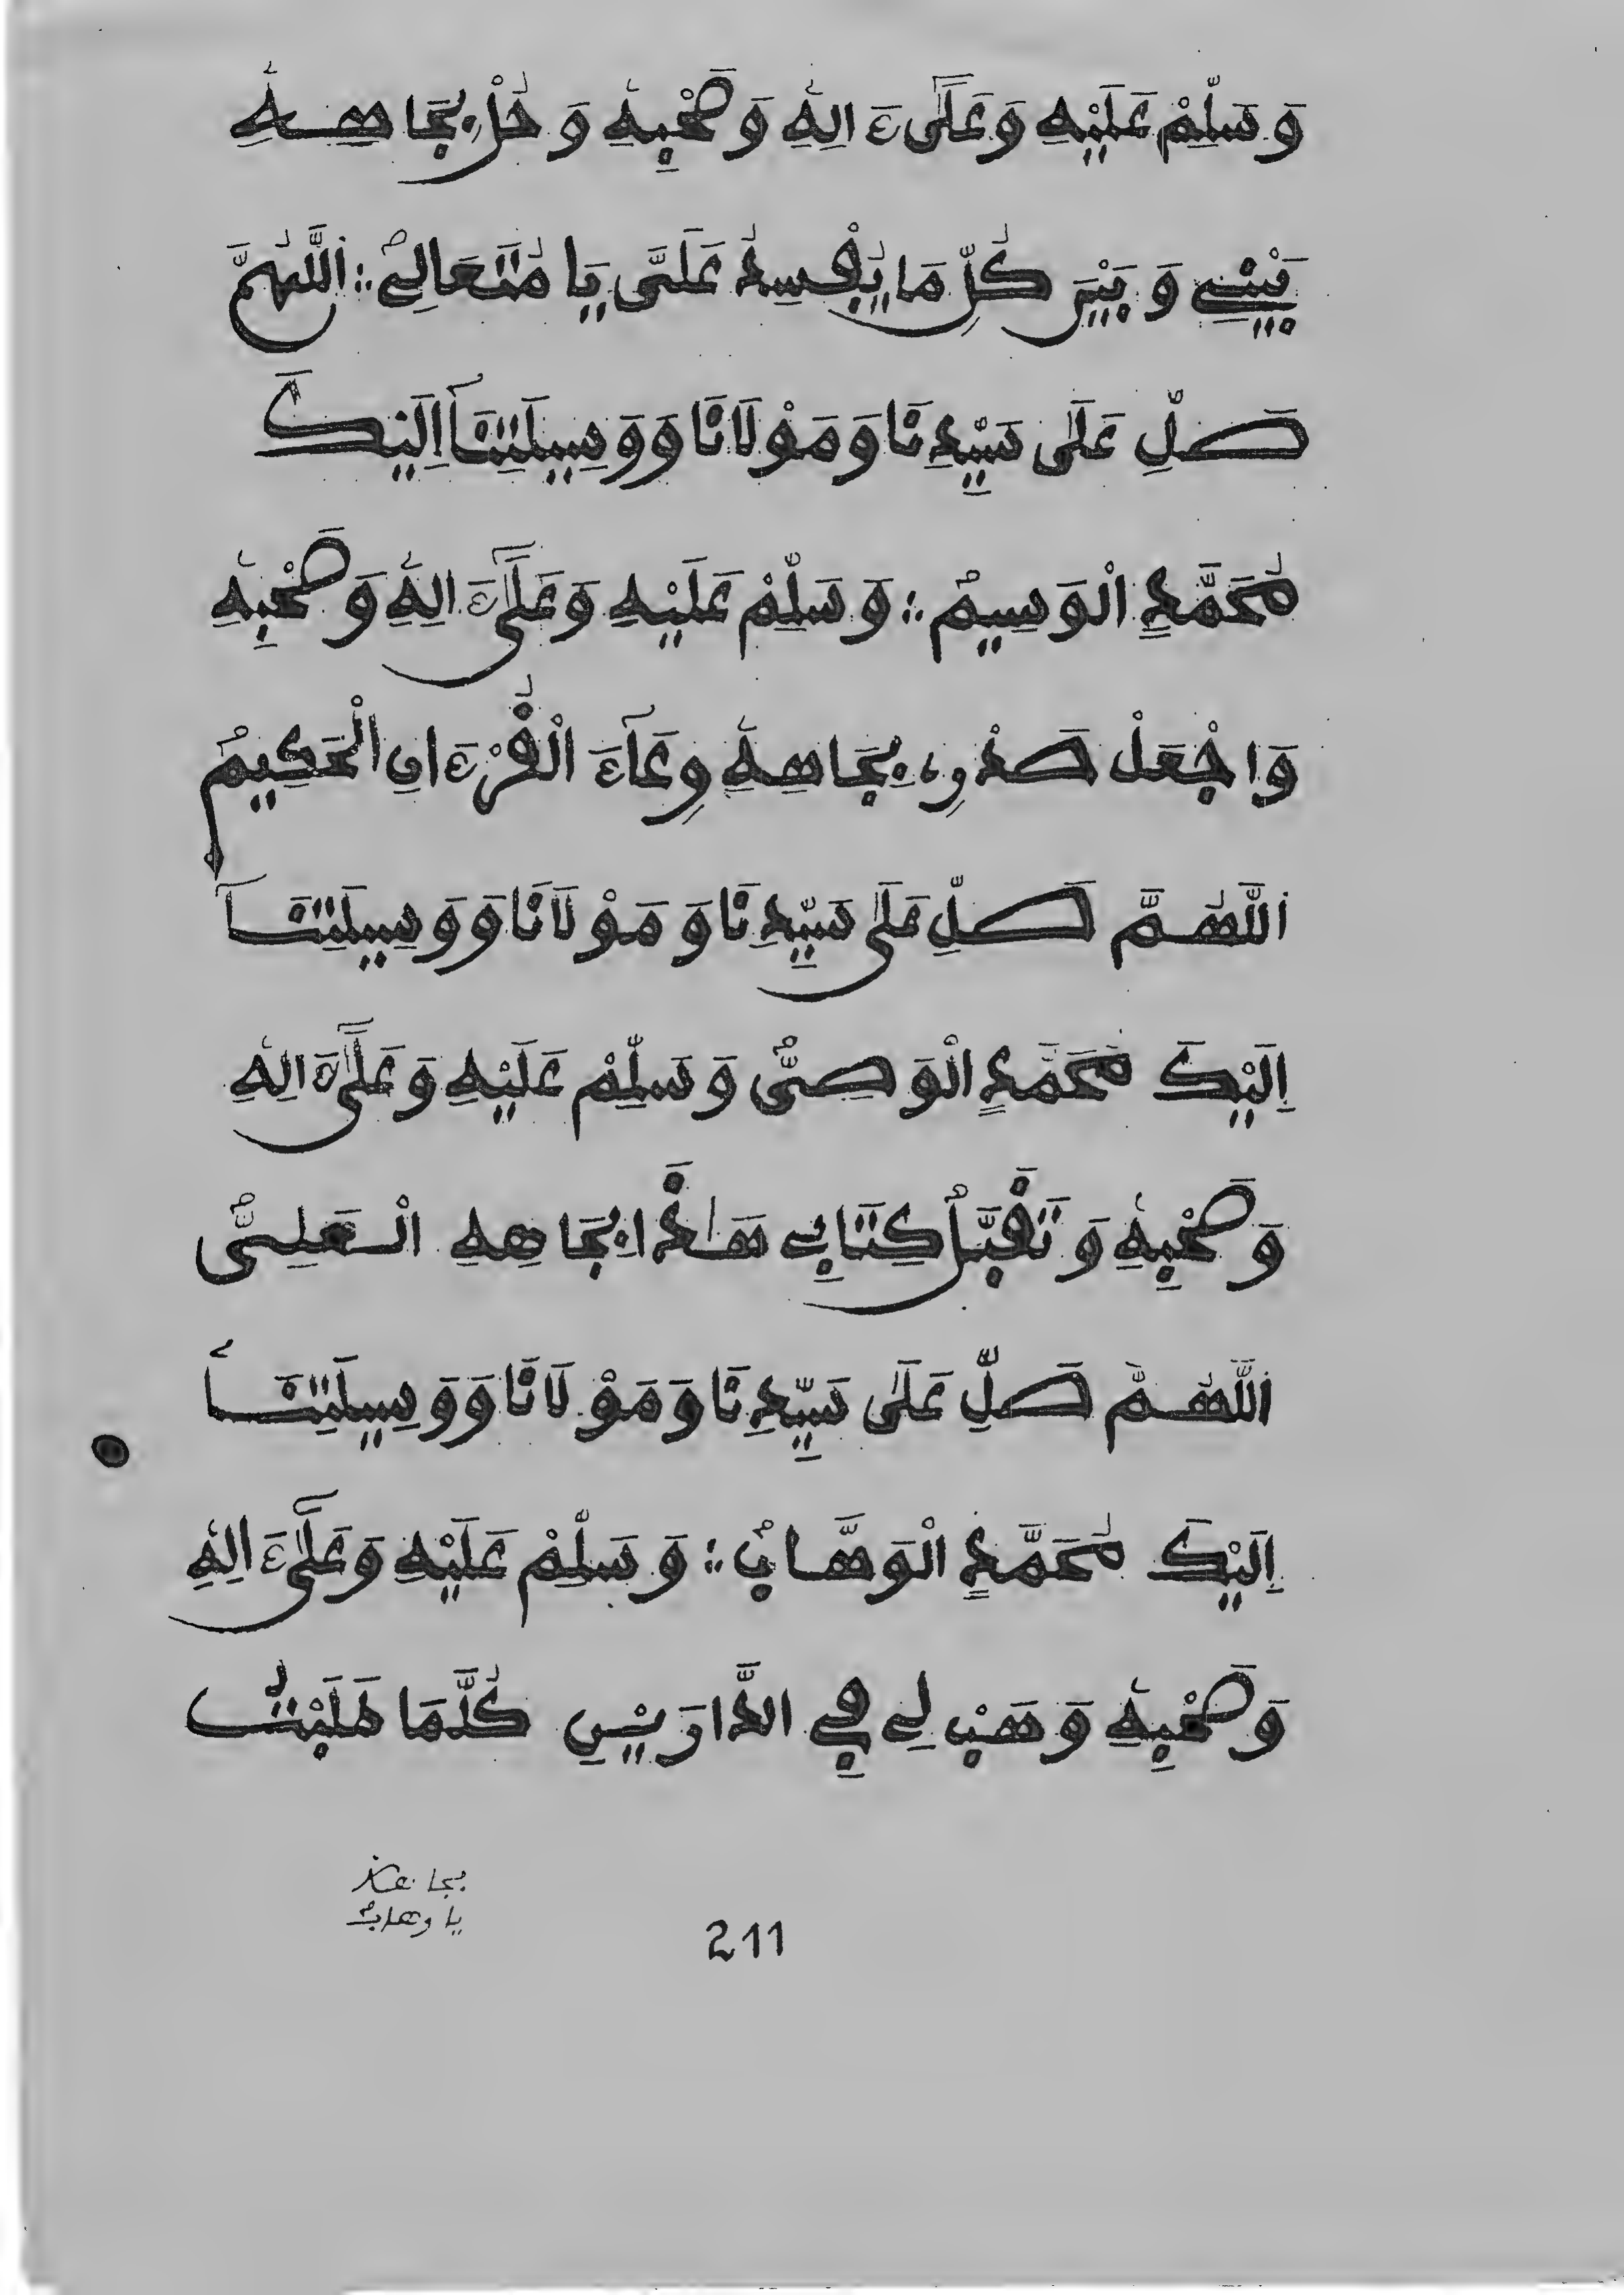 وَسَلِّمْ عَلَيْهِ وَعَلَىٰٓ ءَالِهِ وَصَحْبِهِ وَحُلْ بِجَاهِهِ
بَيْنِي وَبَيْنَ كُلِّ مَا يُفْسِدُ عَلَىَّ يَا مُتَعَالِي ؞ اَللَّهُمَّ
صَلِّ عَلَىٰ سَيِّدِنَا وَمَوْلَانَا وَوَسِيلَتِنَآ إِلَيْكَ
مُحَمَّدٍ الْوَسِيمْ ؞ وَسَلِّمْ عَلَيْهِ وَعَلَىٰٓ ءَالِهِ وَصَحْبِهِ
وَاجْعَلْ صَدْرِے بِجَاهِهِ وِعَآءَ الْقُرْءَانِ الْحَكِيمْ
اَللَّهُمَّ صَلِّ عَلَىٰ سَيِّدِنَا وَمَوْلَانَا وَوَسِيلَتِنَآ
إِلَيْكَ مُحَمَّدٍ الْوَصِىّْ وَسَلِّمْ عَلَيْهِ وَعَلَىٰٓ ءَالِهِ
وَصَحْبِهِ وَتَقَبَّلْ كِتَابِي هَٰذَا بِجَاهِهِ الْعَلِىّْ
اَللَّهُمَّ صَلِّ عَلَىٰ سَيِّدِنَا وَمَوْلَانَا وَوَسِيلَتِنَآ
إِلَيْكَ مُحَمَّدٍ الْوَهَّابْ ؞ وَسَلِّمْ عَلَيْهِ وَعَلَىٰٓ ءَالِهِ
وَصَحْبِهِ وَهَبْ لِي فِي الدَّارَيْنِ كُلَّمَا طَلَبْتُ
يا وهاب
211